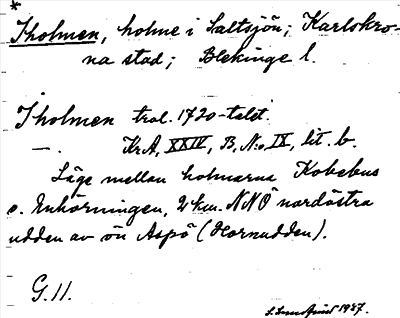 *
Tholmen, holme i Saltsjön; Karlskro-
na stad; Blekinge l.
Tholmen trol. 1720-talet.
—. Kr.A, XXIV, B, N:o IX, lit. b.
Läge mellan holmarna Kobebus
o. Enhörningen, 2 km. NNÖ nordöstra
udden av ön Aspö (Hornudden).
G. 11.
1927.